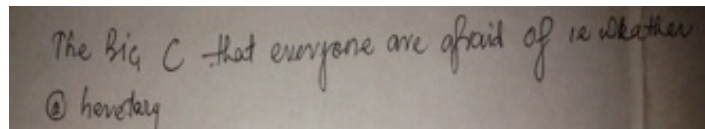 The Big C that everyone are afraid of ie whather
@ heretary